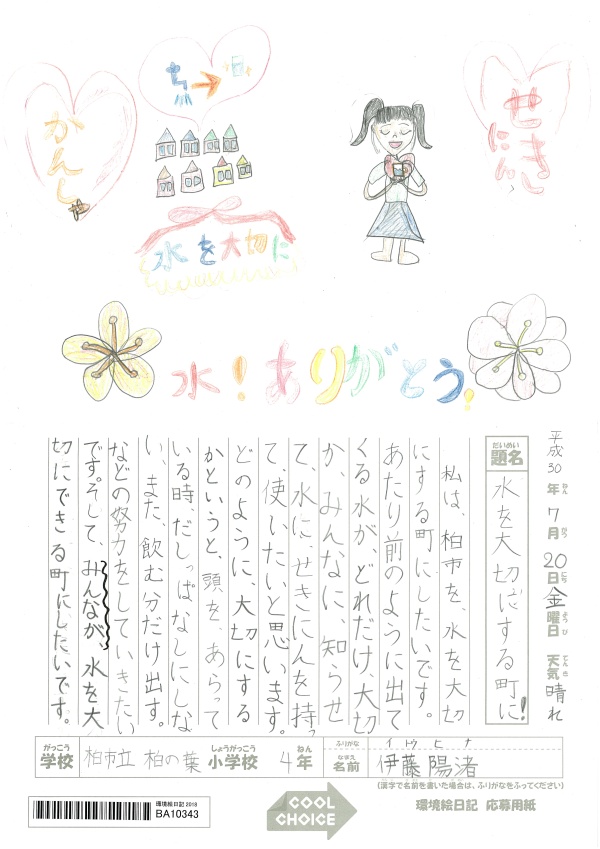 かんしゃ
せきにん
水を大切に
水！ありがとう！
平成30年ねん7月がつ20日にち金曜日ようび天気てんき晴れ
だいめい
題名
水を大切にする町に！
私は、柏市を、水を大切
にする町にしたいです。
あたり前のように出て
くる水が、どれだけ、大切
か、みんなに、知らせ
て、水に、せきにんを持っ
て、使いたいと思います。
どのように、大切にする
かというと、頭を、あらって
いる時、だしっぱなしにしな
い、また、飲む分だけ出す。
などの努力をしていきたい
です。そして、みんなが、水を大
切にできる町にしたいです。
がっこう
学校
柏市立 柏の葉 小学校しょうがっこう 4年ねん
ふりがな イトウ ヒナ
なまえ
名前 伊藤 陽渚
(漢字で名前を書いた場合は、ふりがなをふってください)
環境絵日記 2018
BA10343
COOL CHOICE
環境絵日記 応募用紙